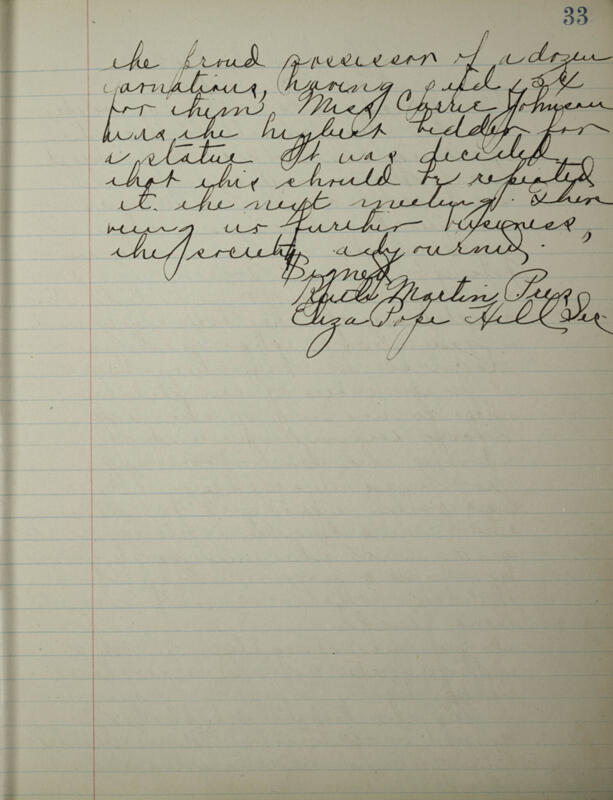 33
the proud possessor of a dozen
carnations, having bid 25¢
for them, Miss Carrie Johnson
was the highest bidder for
a statue. It was decided
that this should be repeated
at the next meeting. There
being no further business,
the society adjourned.
Signed
Ruth Martin Pres
Eliza Pope Hill, Sec